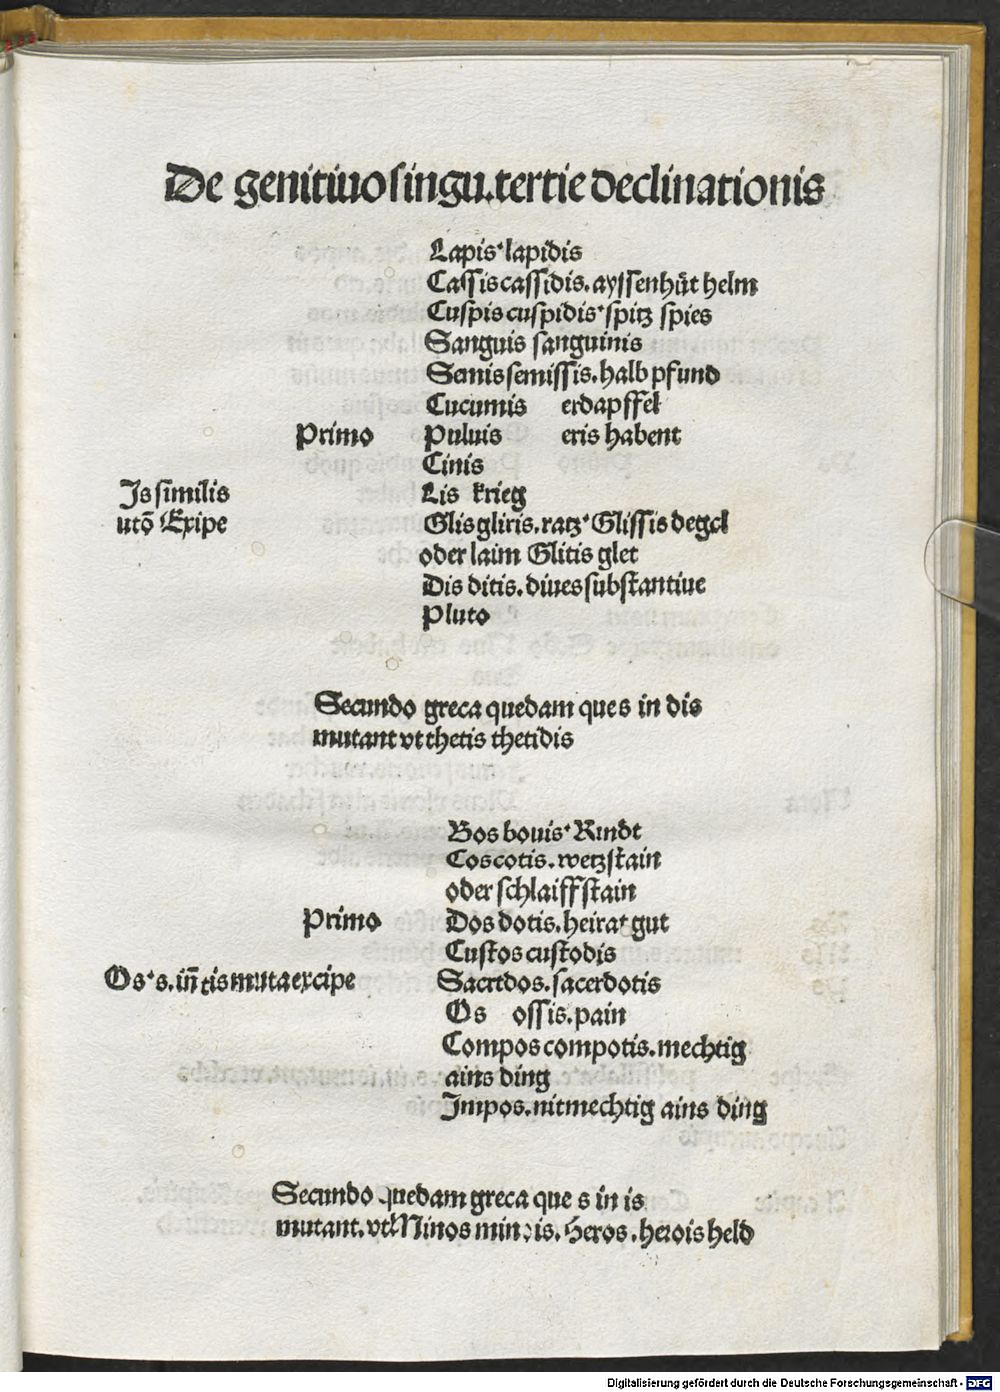 De genitiuo singu. tertie declinationis
Lapis lapidis
Cassis cassidis. ayssenhůt helm
Cuspis cuspidis spitz spies
Sanguis sanguinis
Semis semissis. halb pfund
Cucumis erdapffel
Primo Puluis eris habent
Cinis
Is similis Lis krieg
utō Exipe Glis gliris. ratz Glissis degel
oder laim Glitis glet
Dis ditis. diues substantiue
Pluto
Secundo greca quedam que s in dis
mutant vt thetis thetidis
Bos bouis Rindt
Cos cotis. wetzstain
oder schlaiffstain
Primo Dos dotis. heirat gut
Custos custodis
Os s. in tis muta excipe Sacrdos. sacerdotis
Os ossis. pain
Compos compotis. mechtig
ains ding
Impos. nitmechtig ains ding
Secundo quedam greca que s in is
mutant. vt Minos minois. Heros. herois held
Digitalisierung gefördert durch die Deutsche Forschungsgemeinschaft - DFG